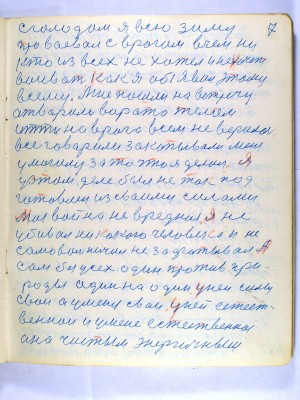 7
с голодом я всю зиму
провоевал с врагом в чем ни
кто из всех не хотел и не хочет
воиват Как я обявил этому
всему. Мне пошли на встречу
отварили варата телом
итти на врага всем не верилос
все говорили закапывали меня
умогилу за то што я делаю. Я
уэтом деле был не так под
готовлен из своими силами
Моя война не вредная, Я не
убивал никакого человека и не
самово ничим не задрагивал А
сам був усех один против при-
роды один на один уней силы
свои а умени свои, Уней естест-
венной и умене естественная
ана чистым энергичным